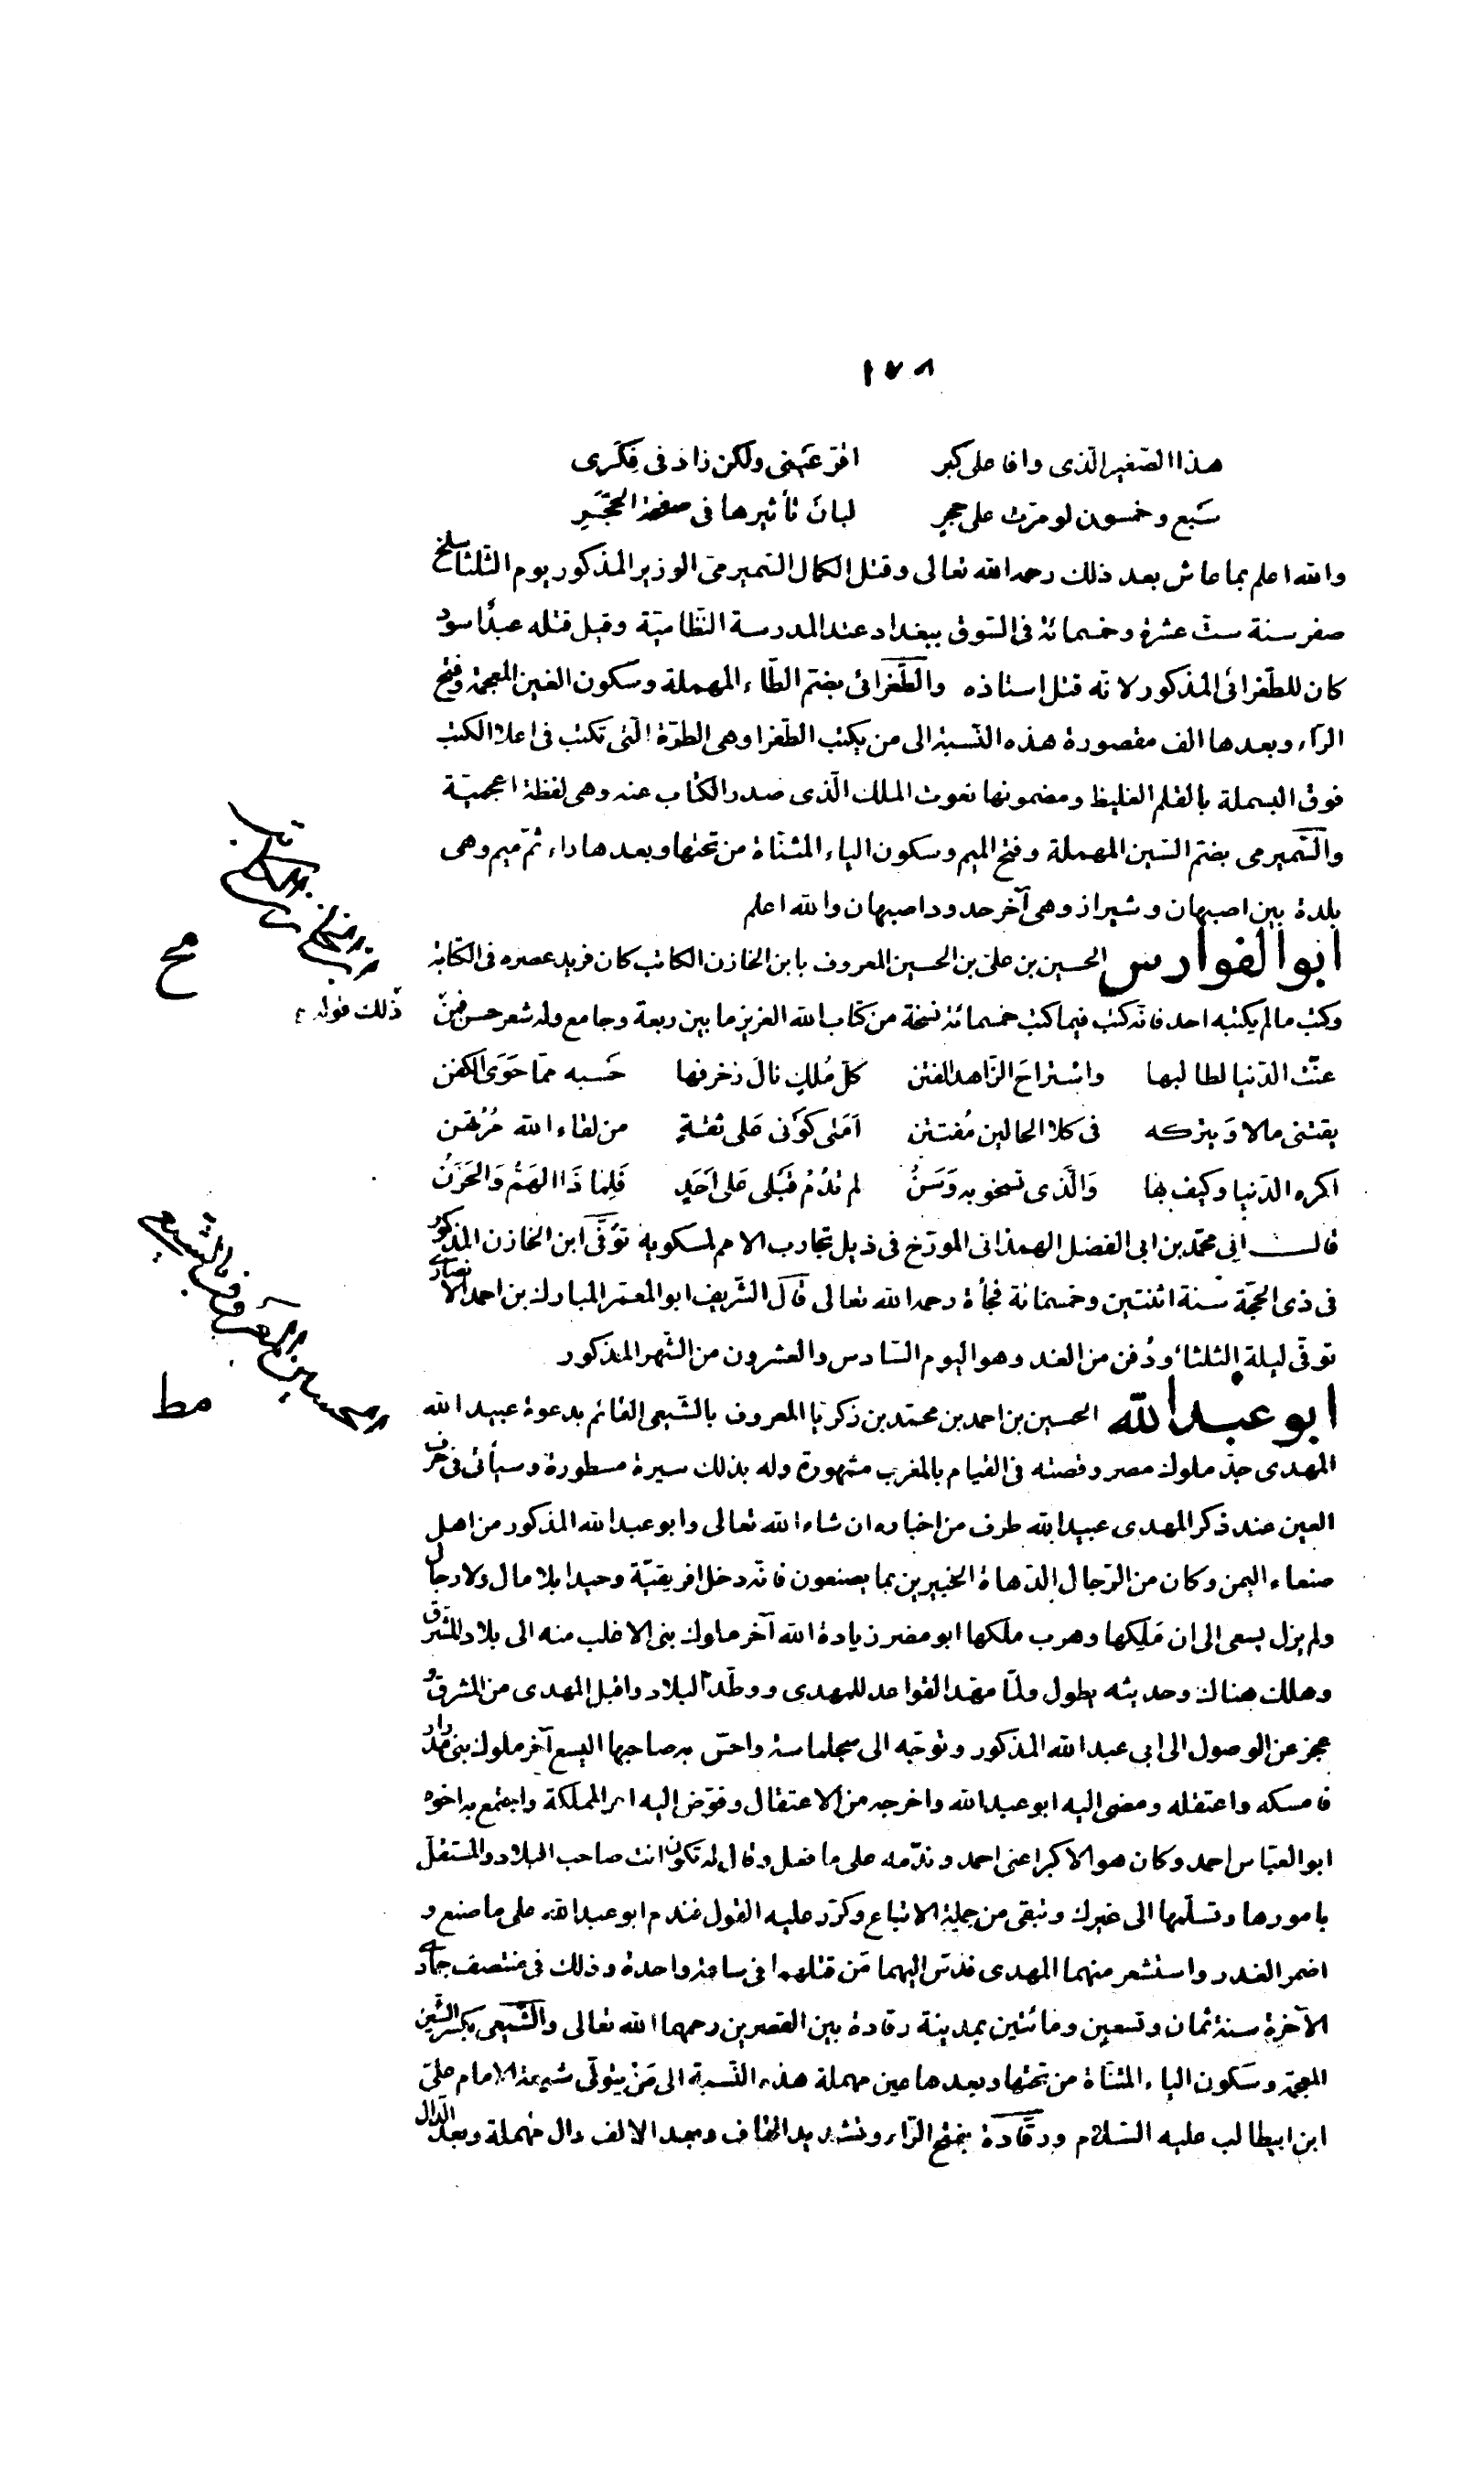 ١٧٨
هذا الصّغير الّذى وافا على كبر اقرّ عَينى ولكن زاد فى فِكَرى
سَبع وخمسون لو مرّت على حجرٍ لبانَ تأثيرها فى صفحة الحَجَرِ
والله اعلم بما عاش بعد ذلك رحمه الله تعالى وقتل الكمال السّميرمىّ الوزير المذكور يوم الثّلثا سلخ
صفر سنة ستّ عشرة وخمسمائة فى السّوق ببغداد عند المدرسة النّظاميّة وقيل قتله عبدٌ اسود
كان للطّغرائى المذكور لانّه قتل استاذه والطّغرائى بضمّ الطّاء المهملة وسكون الغين المعجمة وفتح
الرّاء وبعدها الف مقصورة هذه النّسبة الى من يكتب الطّغرا وهى الطرّة الّتى تكتب فى اعلا الكتب
فوق البسملة بالقلم الغليظ ومضمونها نعوت الملك الّذى صدر الكتاب عنه وهى لفظة اعجميّة
والسّميرمى بضمّ السّين المهملة وفتح الميم وسكون الياء المثنّاة من تحتها وبعدها راء ثمّ ميم وهى
بلدة بين اصبهان وشيراز وهى آخر حدود اصبهان والله اعلم
ابو الفوارس الحسين بن علىّ بن الحسين المعروف بابن الخازن الكاتب كان فريد عصره فى الكتابة
وكتب ما لم يكتبه احد فانّه كتب فيما كتب خمسمائة نسخة من كتاب الله العزيز ما بين ربعة وجامع وله شعر حسن فمن
ذلك قوله
عنّت الدّنيا لطالبها واستراحَ الزّاهد الفَطِن كلّ مُلكٍ نالَ زخرفها حَسبه ممّا حَوَى الكفن
يقتنى مالا وَيتركه فى كلا الحالين مُفتتن اَمَلى كَوْنى عَلى ثقةٍ من لقاء الله مُرْتهن
اكره الدّنيا وكيف بها وَالّذى تسخو به وَسَنُ لم تدُمْ قَبْلى عَلى اَحَدٍ فَلِماذَا الهَمُّ وَالحَزَنُ
قال محمّد بن ابى الفضل الهمذانى المورّخ فى ذيل تجارب الامم لمسكويه تُوفّى ابن الخازن المذكور
فى ذى الحجّة سنة اثنتين وخمسمائة فجأة رحمه الله تعالى قالَ الشّريف ابو المعمّر المبارك بن احمد الانصارى
توفّى ليلة الثلثاء ودُفن من الغد وهو اليوم السّادس والعشرون من الشّهر المذكور
ابو عبد الله الحسين بن احمد بن محمّد بن زكريّا المعروف بالشّيعى القائم بدعوة عبيد الله
المهدى جدّ ملوك مصر وقصته فى القيام بالمغرب مشهورة وله بذلك سيرة مسطورة وسيأتى فى حرف
العين عند ذكر المهدى عبيد الله طرف من اخباره ان شاء الله تعالى وابو عبد الله المذكور من اهل
صنعاء اليمن وكان من الرّجال الدّهاة الخبيرين بما يصنعون فانّه دخل افريقيّة وحيدا بلا مال ولا رجال
ولم يزل يسعى الى ان مَلِكها وهرب ملكها ابو مضر زيادة الله آخر ملوك بنى الاغلب منه الى بلاد المشرق
وهلك هناك وحديثه يطول ولمّا مهّد القواعد للمهدى ووطّد البلاد واقبل المهدى من المشرق و
عجز عن الوصول الى ابى عبد الله المذكور وتوجّه الى سجلماسة واحسّ به صاحبها اليسع آخر ملوك بنى مدرار
فامسكه واعتقله ومضى اليه ابو عبد الله واخرجه من الاعتقال وفوّض اليه امر المملكة واجتمع به اخوه
ابو العبّاس احمد وكان هو الاكبر اعنى احمد وندّمه على ما فعل وقال له تكون انت صاحب البلاد والمستقلّ
بامورها وتسلّمها الى غيرك وتبقى من جملة الاتباع وكرّر عليه القول فندم ابو عبد الله على ما صنع و
اضمر الغدر واستشعر منهما المهدى فدسّ اليهما مَن قتلهما فى ساعة واحدة وذلك فى منتصف جمادى
الآخرة سنة ثمان وتسعين ومائتين بمدينة رقادة بين القصرين رحمها الله تعالى والشّيعى بكسر الشّين
المعجمة وسكون الياء المثنّاة من تحتها وبعدها عين مهملة هذه النّسبة الى مَنْ يتولّى شيعة الامام علىّ
ابن ابيطالب عليه السّلام ورقّادة بفتح الرّاء وتشديد القاف وبعد الالف دال مهملة وبعد الدال
مح
مط